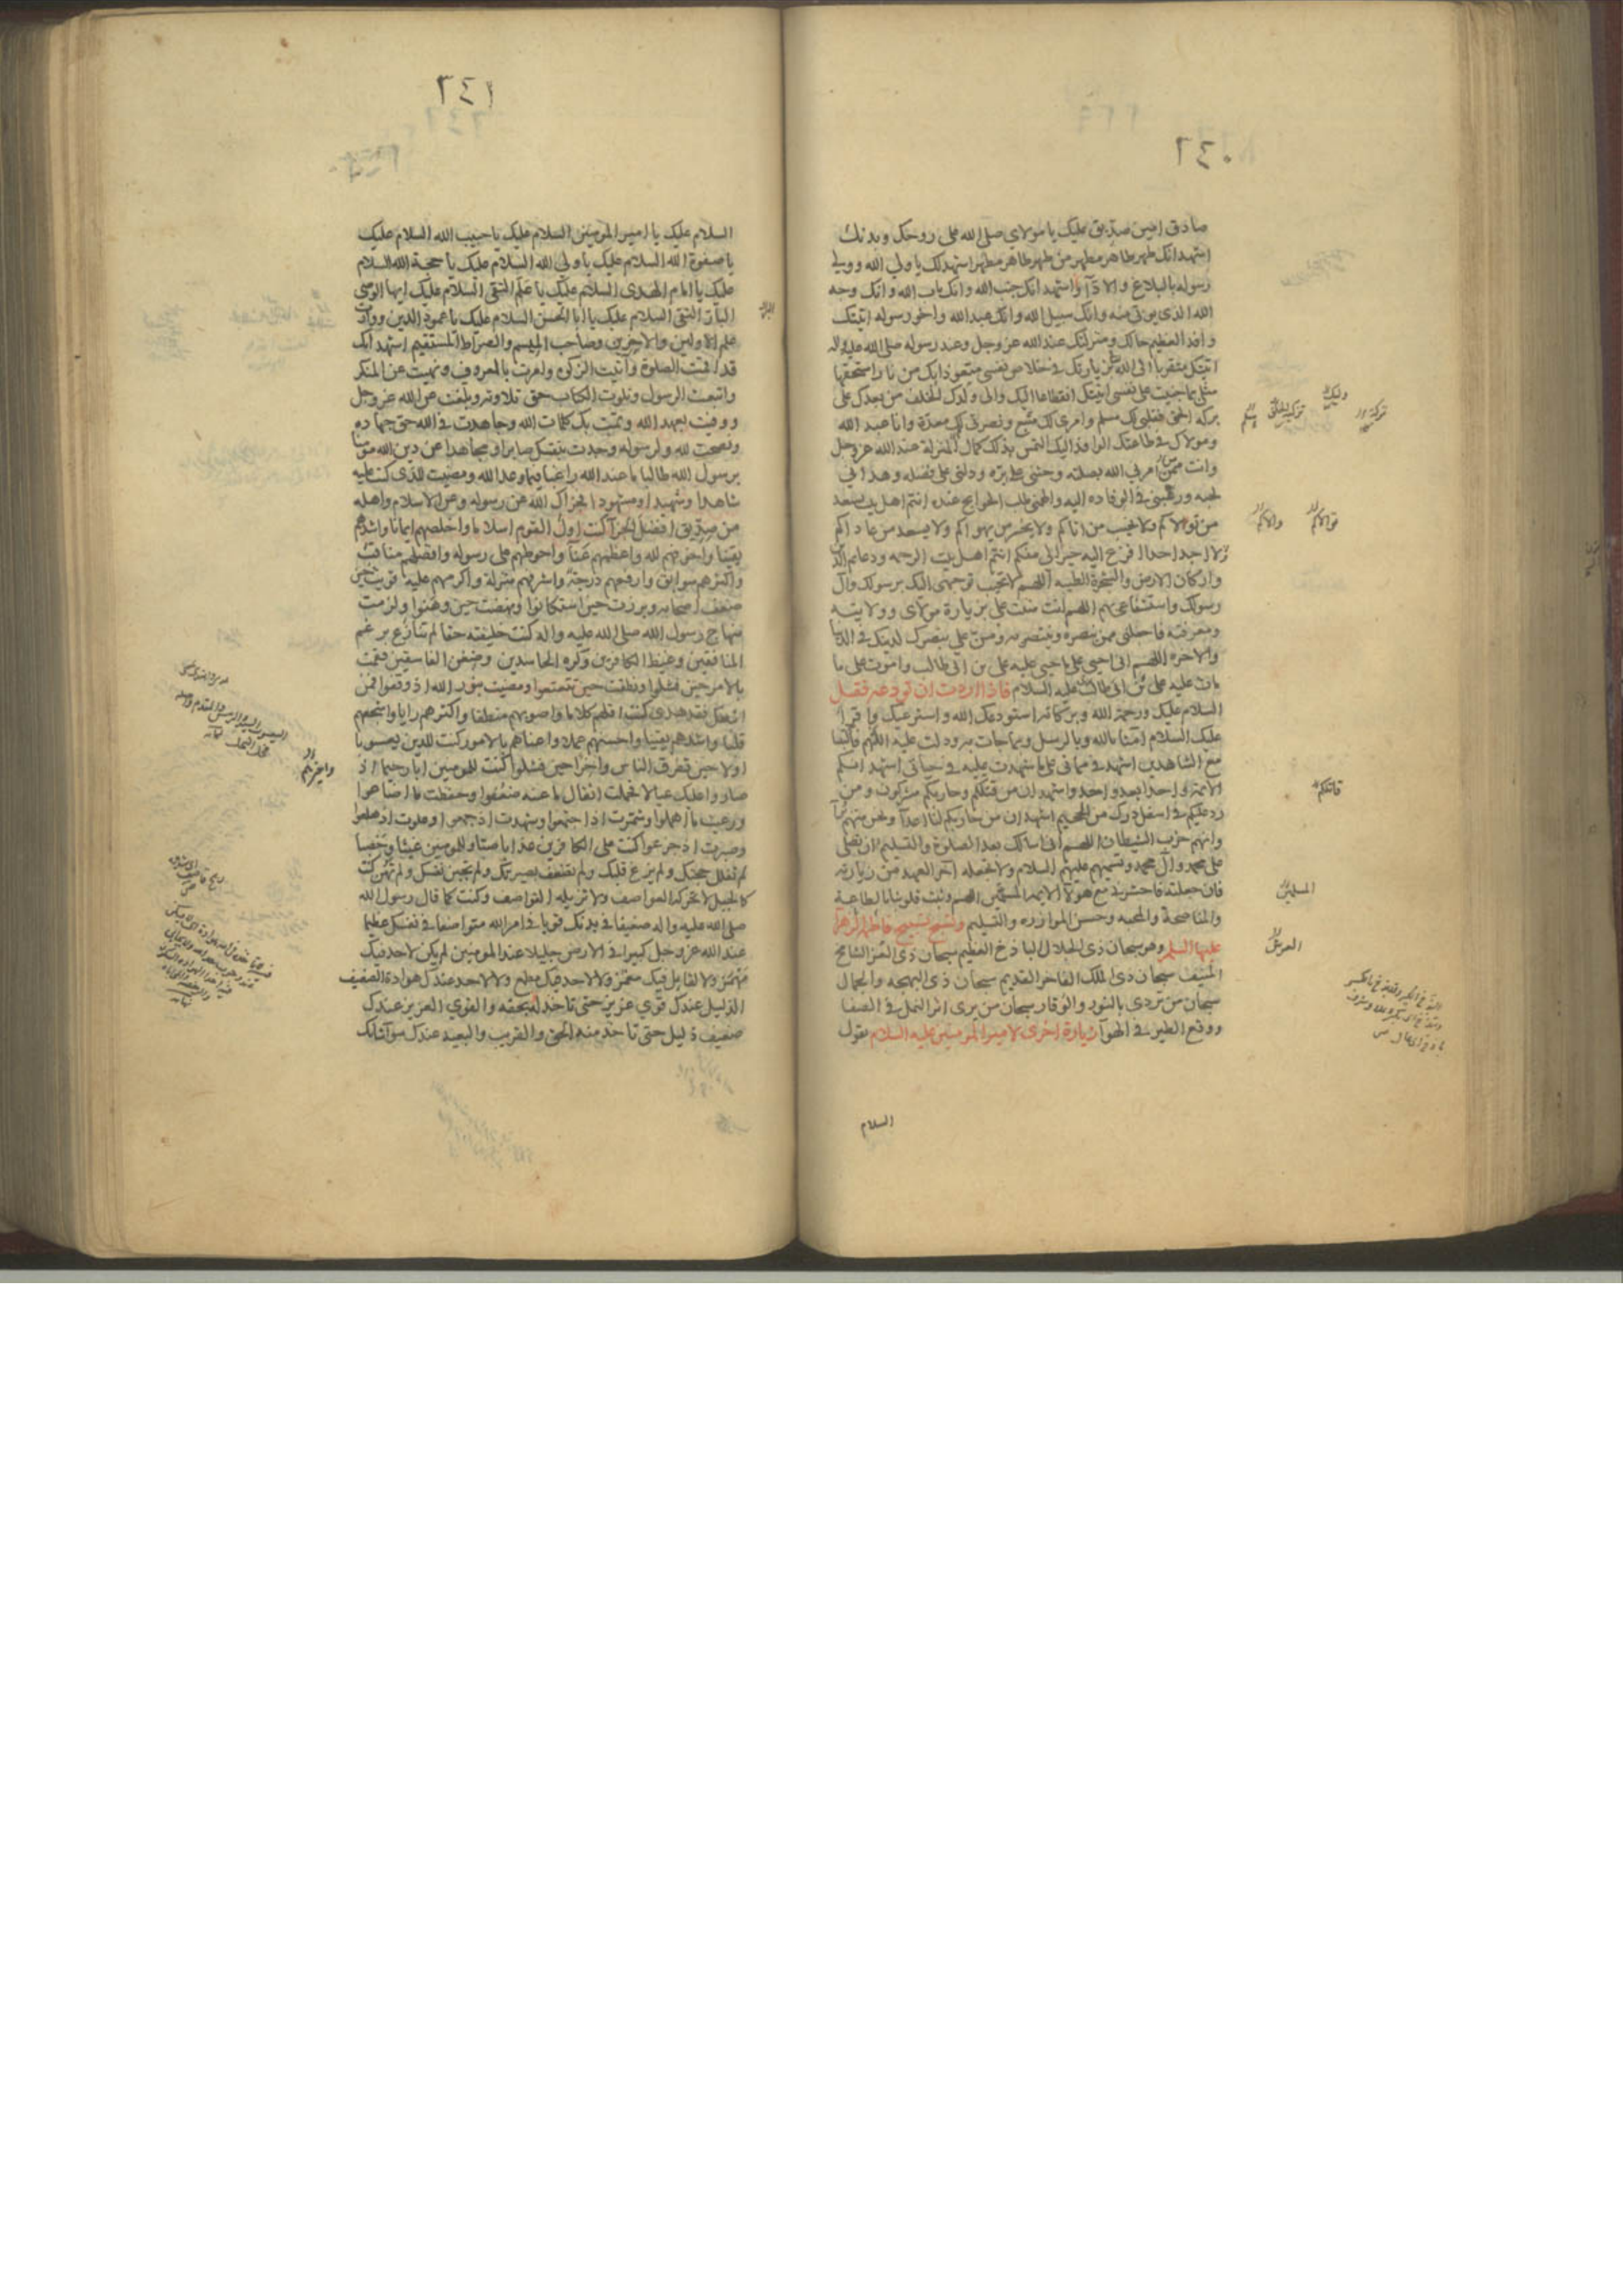 ٣٤٠
صادق امين صديق عليك يا مولاي صلى الله على روحك وبدنك
اشهد انك طهر طاهر مطهر من طهر طاهر مطهر اشهد لك يا ولي الله وولي
رسوله بالبلاغ والادآ واشهد انك جنب الله وانك باب الله وانك وجه
الله الذي يوتى منه وانك سبيل الله وانك عبد الله واخو رسوله اتيتك
وافدا لعظيم حالك ومنزلتك عند الله عز وجل وعند رسوله صلى الله عليه واله
اتيتك متقربا الى الله بزيارتك في خلاص نفسي متعوذا بك من نار استحقها
مثلي بما جنيت على نفسي اتيتك انقطاعا اليك والى ولدك الخلف من بعدك على
بركة الحق فقلبي لك مسلم وامري لك متبع ونصرتي لك معدة وانا عبد الله
ومولاك في طاعتك الوافد اليك التمس بذلك كمال المنزلة عند الله عز وجل
وانت ممن امرني الله بصلته وحثني على بره ودلني على فضله وهداني
لحبه ورغبني في الوفادة اليه والهمني طلب الحوايج عنده انتم اهل بيت يسعد
من تولاكم ولا يخيب من اتاكم ولا يخسر من يهواكم ولا يسعد من عاداكم
لا اجد احدا افزع اليه خيرا لي منكم انتم اهل بيت الرحمه ودعايم الدين
واركان الارض والشجرة الطيبه اللهم لا تخيب توجهي اليك برسولك وآل
رسولك واستشفاعي بهم اللهم انت مننت علي بزيارة مولاي وولايته
ومعرفته فاجعلني ممن ينصره وينتصر به ومن علي بنصرك لدينك في الدنيا
والاخره اللهم اني احيي على ما حيي عليه علي بن ابي طالب واموت على ما
مات عليه علي بن ابي طالب عليه السلام فاذا اردت ان تودعه فقل
السلام عليك ورحمة الله وبركاته استودعك الله واسترعيك واقرا
عليك السلام امنا بالله وبالرسل وبما جات به ودلت عليه اللهم فاكتبنا
مع الشاهدين اشهد في مماتي على ما شهدت عليه في حياتي اشهد انكم
الائمة واحدا بعد واحد واشهد ان من قتلكم وحاربكم مشركون ومن
رد عليكم في اسفل درك من الجحيم اشهد ان من حاربكم لنا اعدآ ونحن منهم برآ
وانهم حزب الشيطان اللهم اني اسالك بعد الصلوة والتسليم ان تصلي
على محمد وآل محمد وتسميهم عليهم السلام ولا تجعله آخر العهد من زيارته
فان جعلته فاحشرني مع هولآ الايمه المسمين اللهم وثبت قلوبنا بالطاعة
والمناصحة والمحبه وحسن الموازره والتسليم وتسبح تسبيح فاطمة الزهرآ
عليها السلم وهو سبحان ذي الجلال الباذخ العظيم سبحان ذي العز الشامخ
المنيف سبحان ذي الملك الفاخر القديم سبحان ذي البهجه والجمال
سبحان من تردى بالنور والوقار سبحان من يرى اثر النمل في الصفا
ووقع الطير في الهوآ زيارة اخرى لامير المومنين عليه السلام تقول
السلام
والاكم
قاتلكم
المسلمين
٣٤١
السلام عليك يا امير المومنين السلام عليك يا حبيب الله السلام عليك
يا صفوة الله السلام عليك يا ولي الله السلام عليك يا حجة الله السلام
عليك يا امام الهدى السلام عليك يا علم التقى السلام عليك ايها الوصي
البار التقي السلام عليك يا ابا الحسن السلام عليك يا عمود الدين ووارث
علم الاولين والاخرين وصاحب الميسم والصراط المستقيم اشهد انك
قد اقمت الصلوة وآتيت الزكوة وامرت بالمعروف ونهيت عن المنكر
واتبعت الرسول وتلوت الكتاب حق تلاوته وبلغت عن الله عز وجل
ووفيت بعهد الله وتمت بك كلمات الله وجاهدت في الله حق جهاده
ونصحت لله ولرسوله وجدت بنفسك صابرا ومجاهدا عن دين الله موقنا
برسول الله طالبا ما عند الله راغبا فيما وعد الله ومضيت للذي كنت عليه
شاهدا وشهيدا ومشهودا فجزاك الله عن رسوله وعن الاسلام واهله
من صديق افضل الجزآ كنت اول القوم اسلاما واخلصهم ايمانا واشدهم
يقينا واخوفهم لله واعظمهم عنآ واحوطهم على رسوله وافضلهم مناقب
واكثرهم سوابق وارفعهم درجة واشرفهم منزلة واكرمهم عليه قويت حين
ضعف اصحابه وبرزت حين استكانوا ونهضت حين وهنوا ولزمت
منهاج رسول الله صلى الله عليه واله كنت خليفته حقا لم تنازع برغم
المنافقين وغيظ الكافرين وكره الحاسدين وضغن الفاسقين فقمت
بالامر حين فشلوا ونطقت حين تتعتعوا ومضيت بنور الله اذ وقفوا فمن
اتبعك فقد هدي كنت اقلهم كلاما واصوبهم منطقا واكثرهم رايا واشجعهم
قلبا واشدهم يقينا واحسنهم عملا واعناهم بالامور كنت للدين يعسوبا
اولا حين تفرق الناس واخرا حين فشلوا كنت للمومنين ابا رحيما اذ
صاروا عليك عيالا فحملت اثقال ما عنه ضعفوا وحفظت ما اضاعوا
ورعيت ما اهملوا وشمرت اذا اجتمعوا وشهدت اذ جمعوا وعلوت اذ هلعوا
وصبرت اذ جزعوا كنت على الكافرين عذابا صبا وللمومنين غيثا وخصبا
لم تفلل حجتك ولم يزغ قلبك ولم تضعف بصيرتك ولم تجبن نفسك ولم تهن كنت
كالجبل لا تحركه العواصف ولا تزيله القواصف وكنت كما قال رسول الله
صلى الله عليه واله ضعيفا في بدنك قويا في امر الله متواضعا في نفسك عظيما
عند الله عز وجل كبيرا في الارض جليلا عند المومنين لم يكن لاحد فيك
مهمز ولا لقايل فيك مغمز ولا لاحد فيك مطمع ولا لاحد عندك هوادة الضعيف
الذليل عندك قوي عزيز حتى تاخذ له بحقه والقوي العزيز عندك
ضعيف ذليل حتى تاخذ منه الحق والقريب والبعيد عندك سوآ شانك